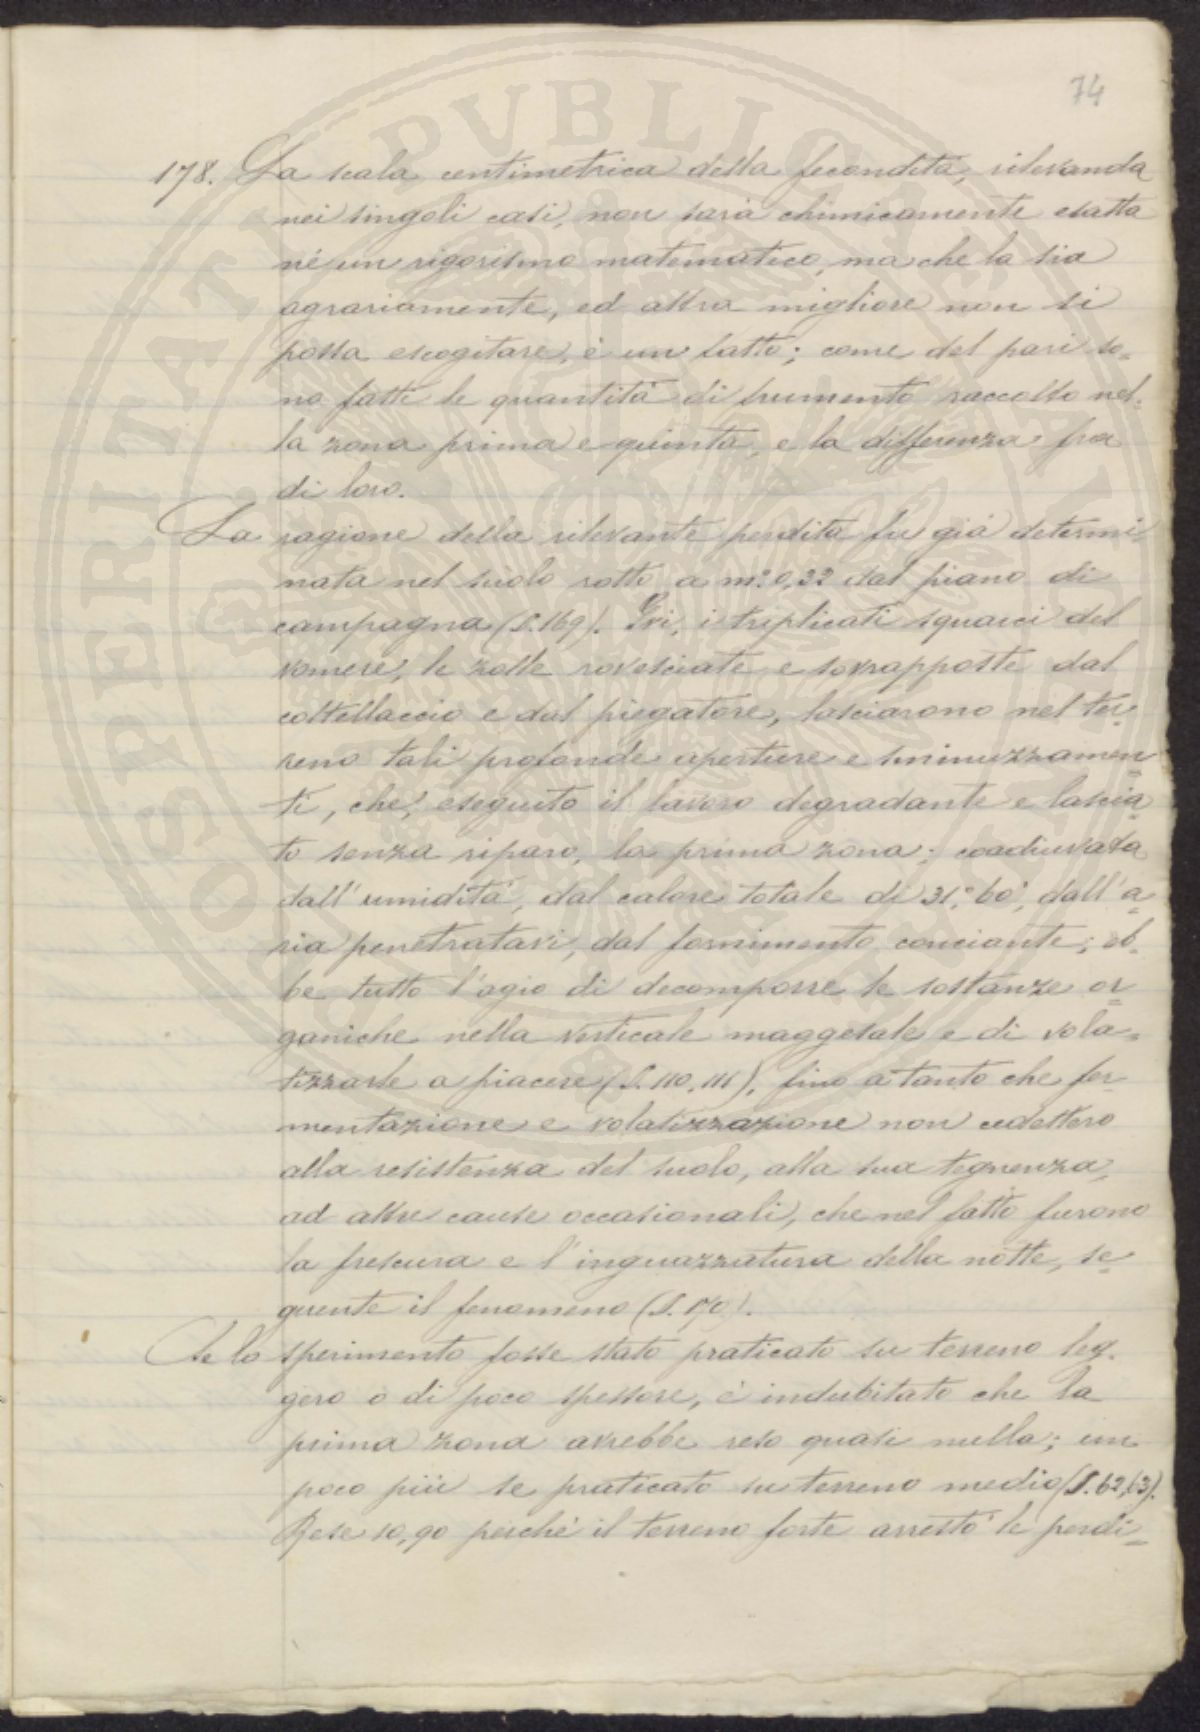 74
178. La scala centimetrica della fecondità, rilevanda
nei singoli casi, non sarà chimicamente esatta
nè un rigorismo matematico, ma che la sia
agrariamente, ed altra migliore non si
possa escogitare, è un fatto; come del pari so=
no fatti le quantità di frumento raccolto nel=
la zona prima e quinta, e la differenza fra
di loro.
La ragione della rilevante perdita fu già determi=
nata nel suolo rotto a m.º 0,22 dal piano di
campagna (S. 169). Ivi, i triplicati squarci del
vomere, le zolle rovesciate e sovrapposte dal
coltellaccio e dal piegatore, lasciarono nel ter=
reno tali profonde aperture e sminuzzamen=
ti, che, eseguito il lavoro degradante e lascia=
to senza riparo, la prima zona; coadiuvata
dall'umidità, dal calore totale di 31.º 60', dall'a=
ria penetratavi, dal fornimento conciante; eb=
be tutto l'agio di decomporre le sostanze or=
ganiche nella verticale maggesale e di vola=
tizzarle a piacere (S. 110, 111), fino a tanto che fer
mentazione e volatizzazione non cedettero
alla resistenza del suolo, alla sua tegnenza,
ad altre cause occasionali, che nel fatto furono
la frescura e l'inguazzatura della notte, se=
guente il fenomeno (S. 170).
Se lo sperimento fosse stato praticato su terreno leg=
gero o di poco spessore, è indubitato che la
prima zona avrebbe reso quasi nulla; un
poco più se praticato su terreno medio (S. 62, 63).
Rese 10,90 perchè il terreno forte arrestò le perdi=
PVBLICAE
PROSPERITATI